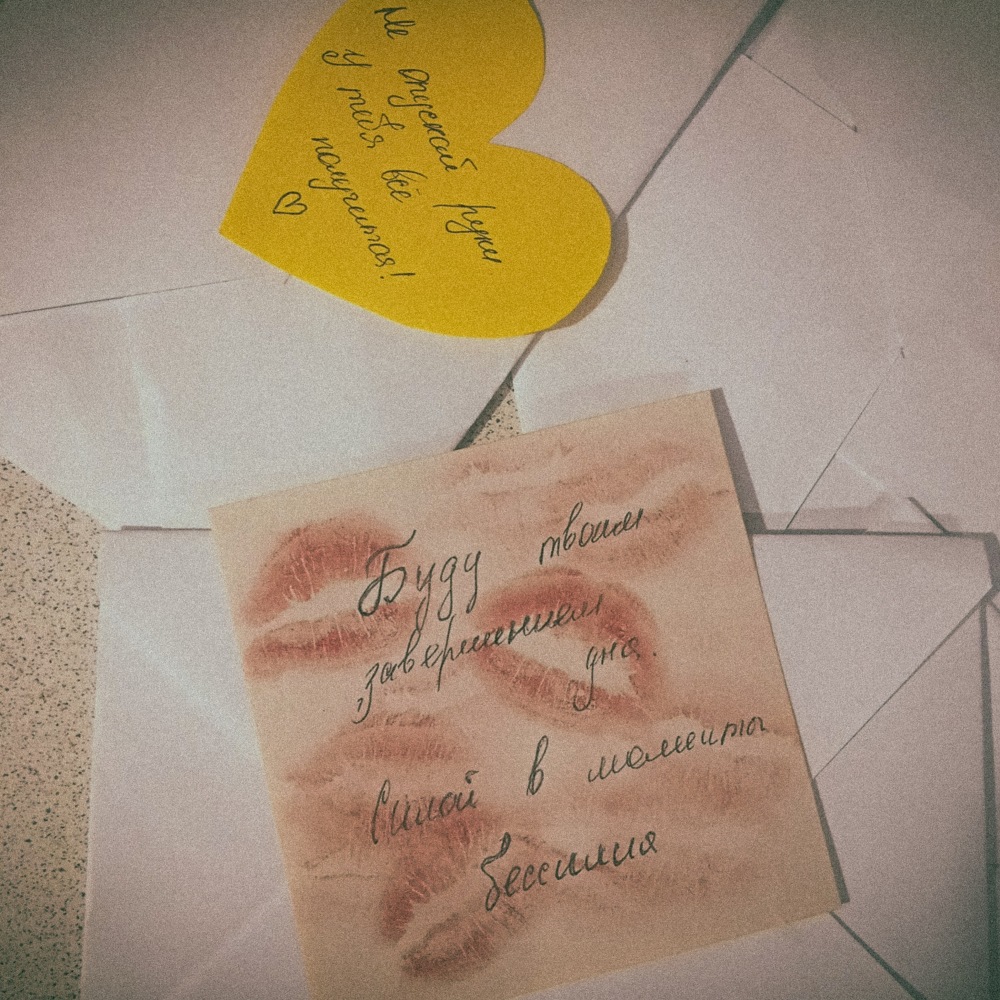 Не опускай руки
у тебя всё
получится!
Буду твоим
завершением
дна.
Силой в моменты
бессилия